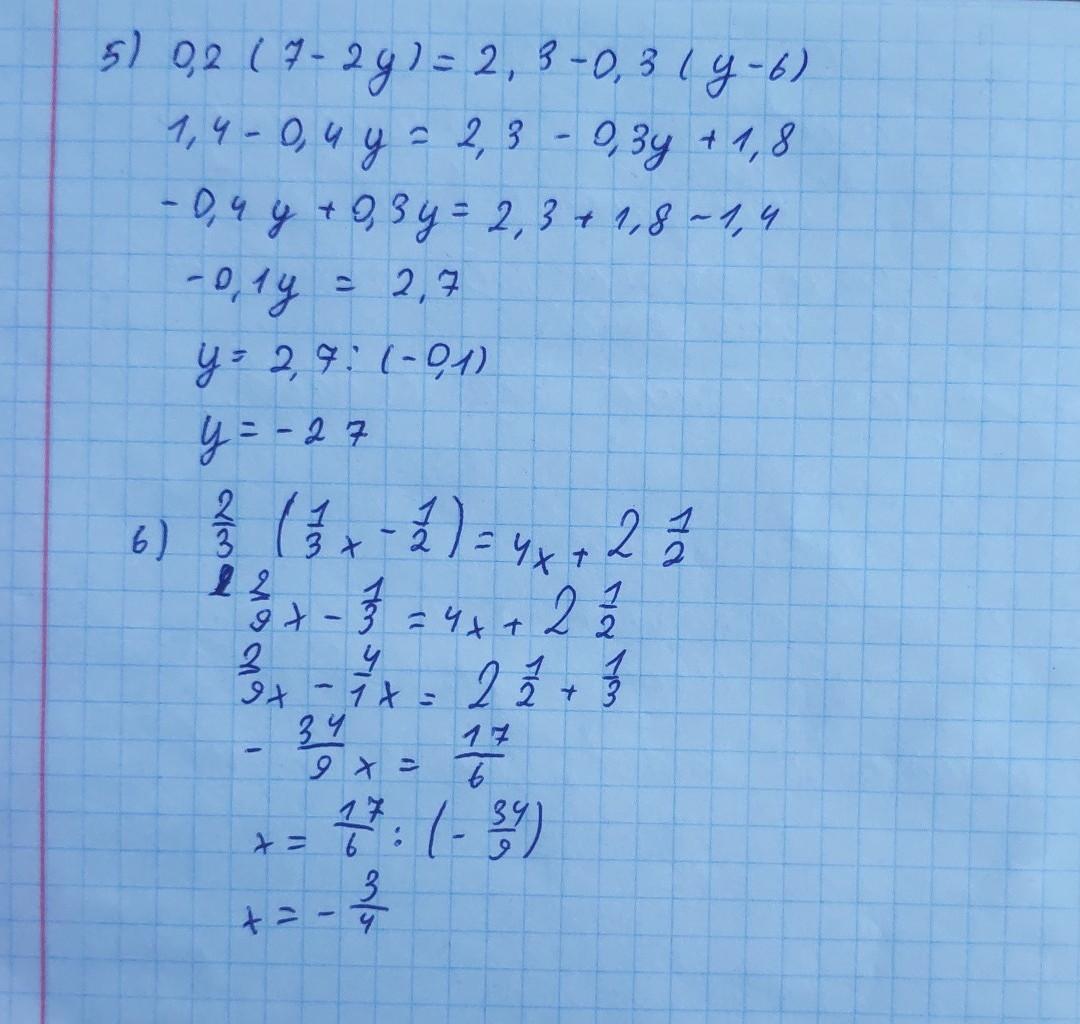 5) 0,2 (7 - 2y) = 2,3 - 0,3 (y - 6)
1,4 - 0,4y = 2,3 - 0,3y + 1,8
-0,4y + 0,3y = 2,3 + 1,8 - 1,4
-0,1y = 2,7
y = 2,7 : (-0,1)
y = -27
6) 2/3 (1/3 x - 1/2) = 4x + 2 1/2
2/9 x - 1/3 = 4x + 2 1/2
2/9 x - 4/1 x = 2 1/2 + 1/3
- 34/9 x = 17/6
x = 17/6 : (- 34/9)
x = - 3/4